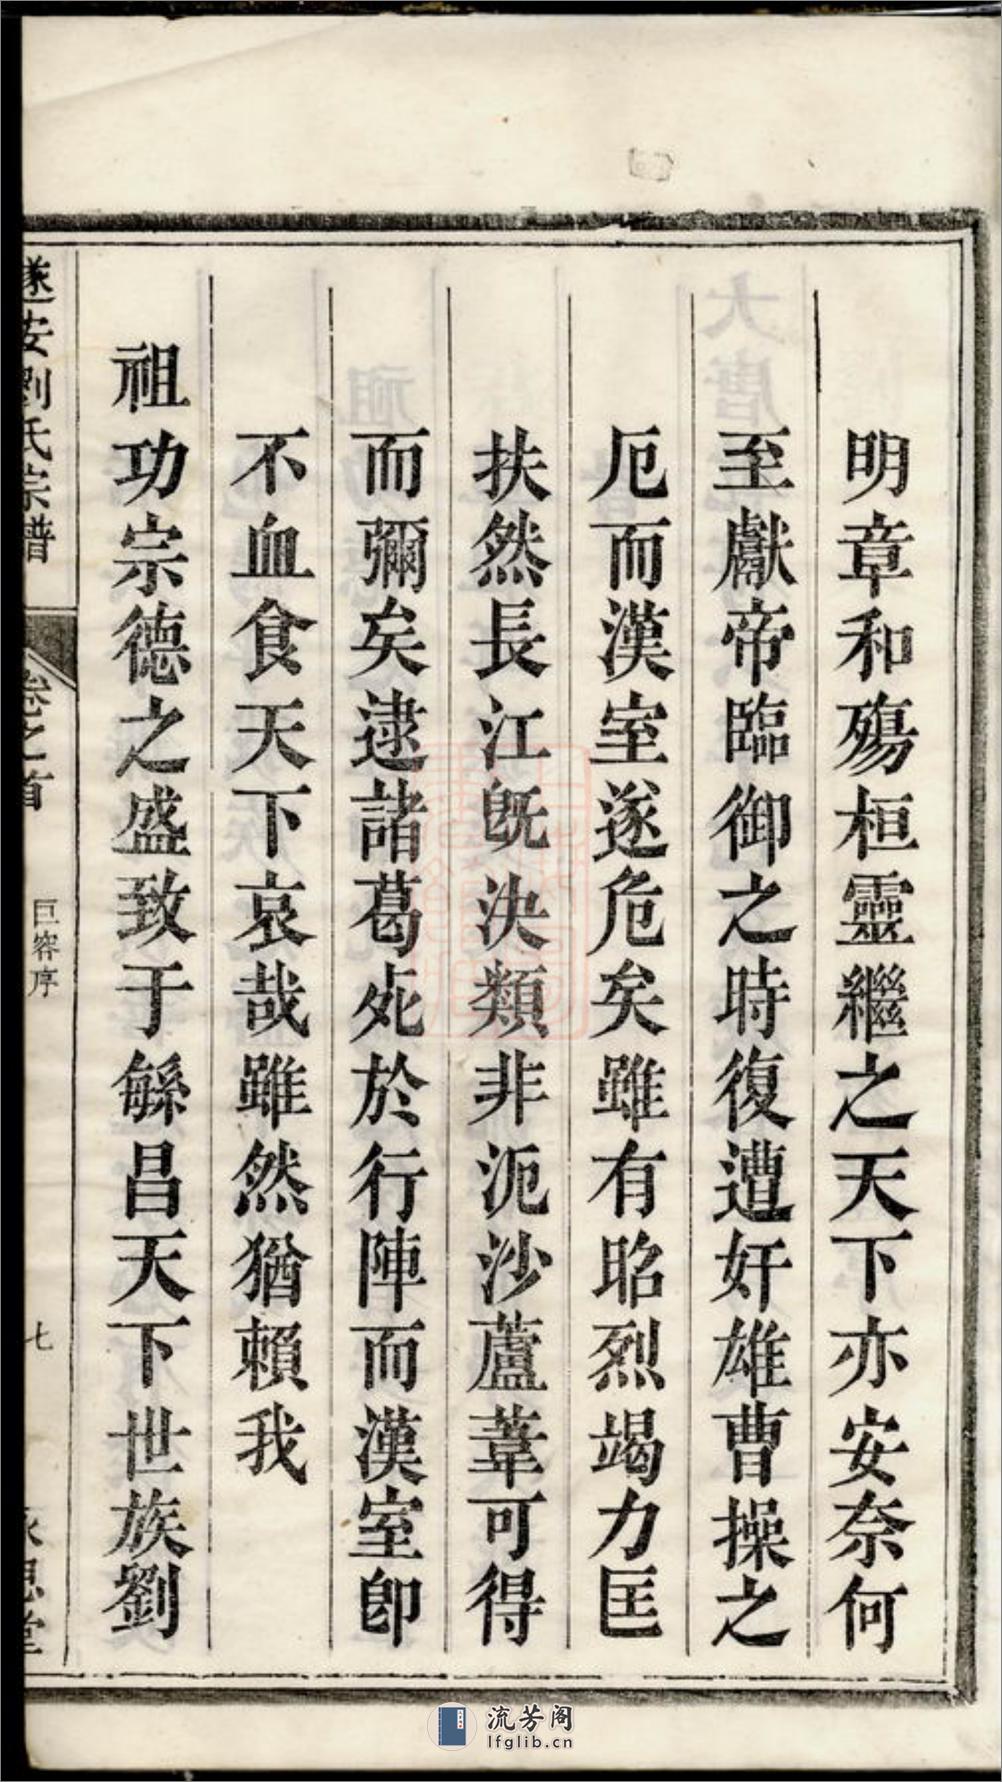 明章和殤桓靈繼之天下亦安奈何
至獻帝臨御之時復遭奸雄曹操之
厄而漢室遂危矣雖有昭烈竭力匡
扶然長江旣決類非泥沙蘆葦可得
而彌矣逮諸葛𣦸於行陣而漢室卽
不血食天下哀哉雖然猶賴我
祖功宗德之盛致于繇昌天下世族劉
遂安劉氏宗譜
卷之首
巨容序
七
永思堂
流芳阁
lfglib.cn